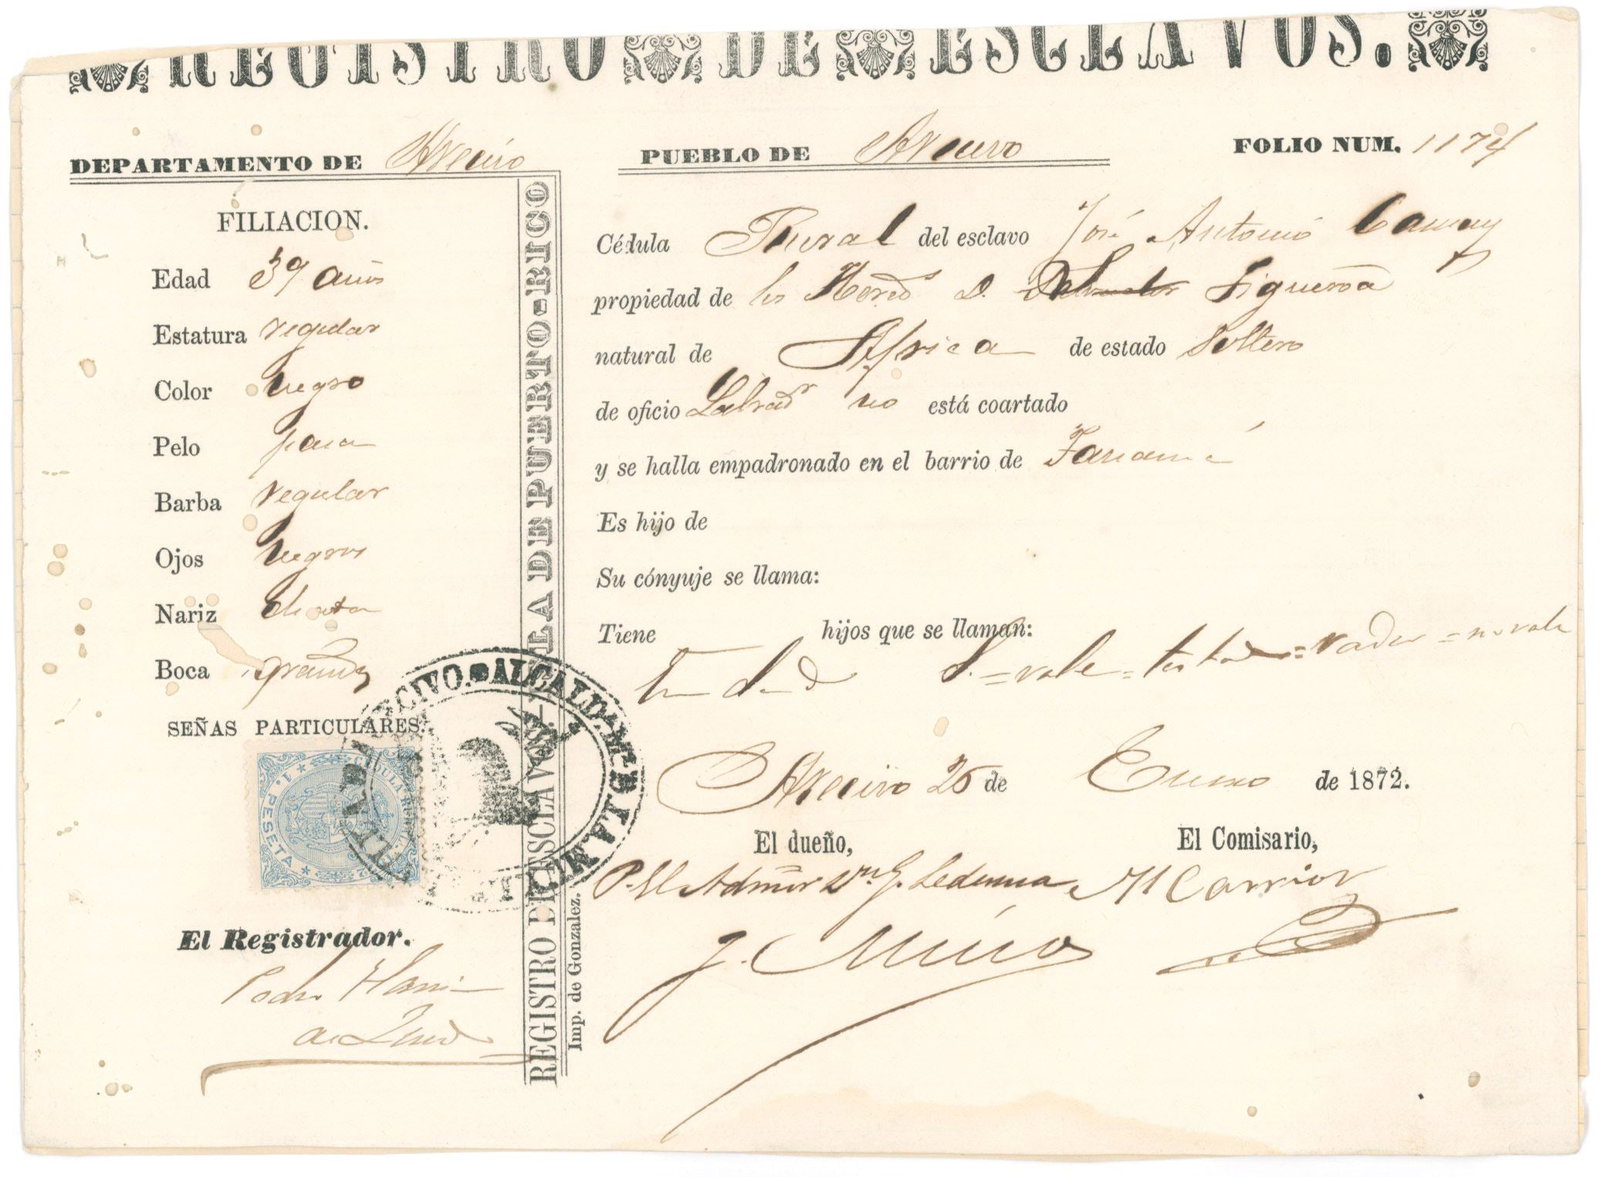 REGISTRO DE ESCLAVOS.
DEPARTAMENTO DE Arecivo PUEBLO DE Arecivo FOLIO NUM. 1174
FILIACION.
Edad 39 años
Estatura regular
Color negro
Pelo pasa
Barba regular
Ojos negros
Nariz chata
Boca grande
SEÑAS PARTICULARES.
CÉDULA RURAL
1 PESETA
ALCALDIA
ARECIVO.
El Registrador.
Pedro
REGISTRO DE ESCLAVOS DE LA ISLA DE PUERTO-RICO
Imp. de Gonzalez.
Cédula Rural del esclavo José Antonio Camuy
propiedad de los Hered.s D. Figueroa
natural de Africa de estado Soltero
de oficio Labrad.r no está coartado
y se halla empadronado en el barrio de Tanamá
Es hijo de
Su cónyuje se llama:
Tiene hijos que se llaman:
D. = vale = testado = vador = no vale
Arecivo 25 de Enero de 1872.
El dueño, El Comisario,
P. El Admor Dn. G. Ledesma M Carrion
J. Muños